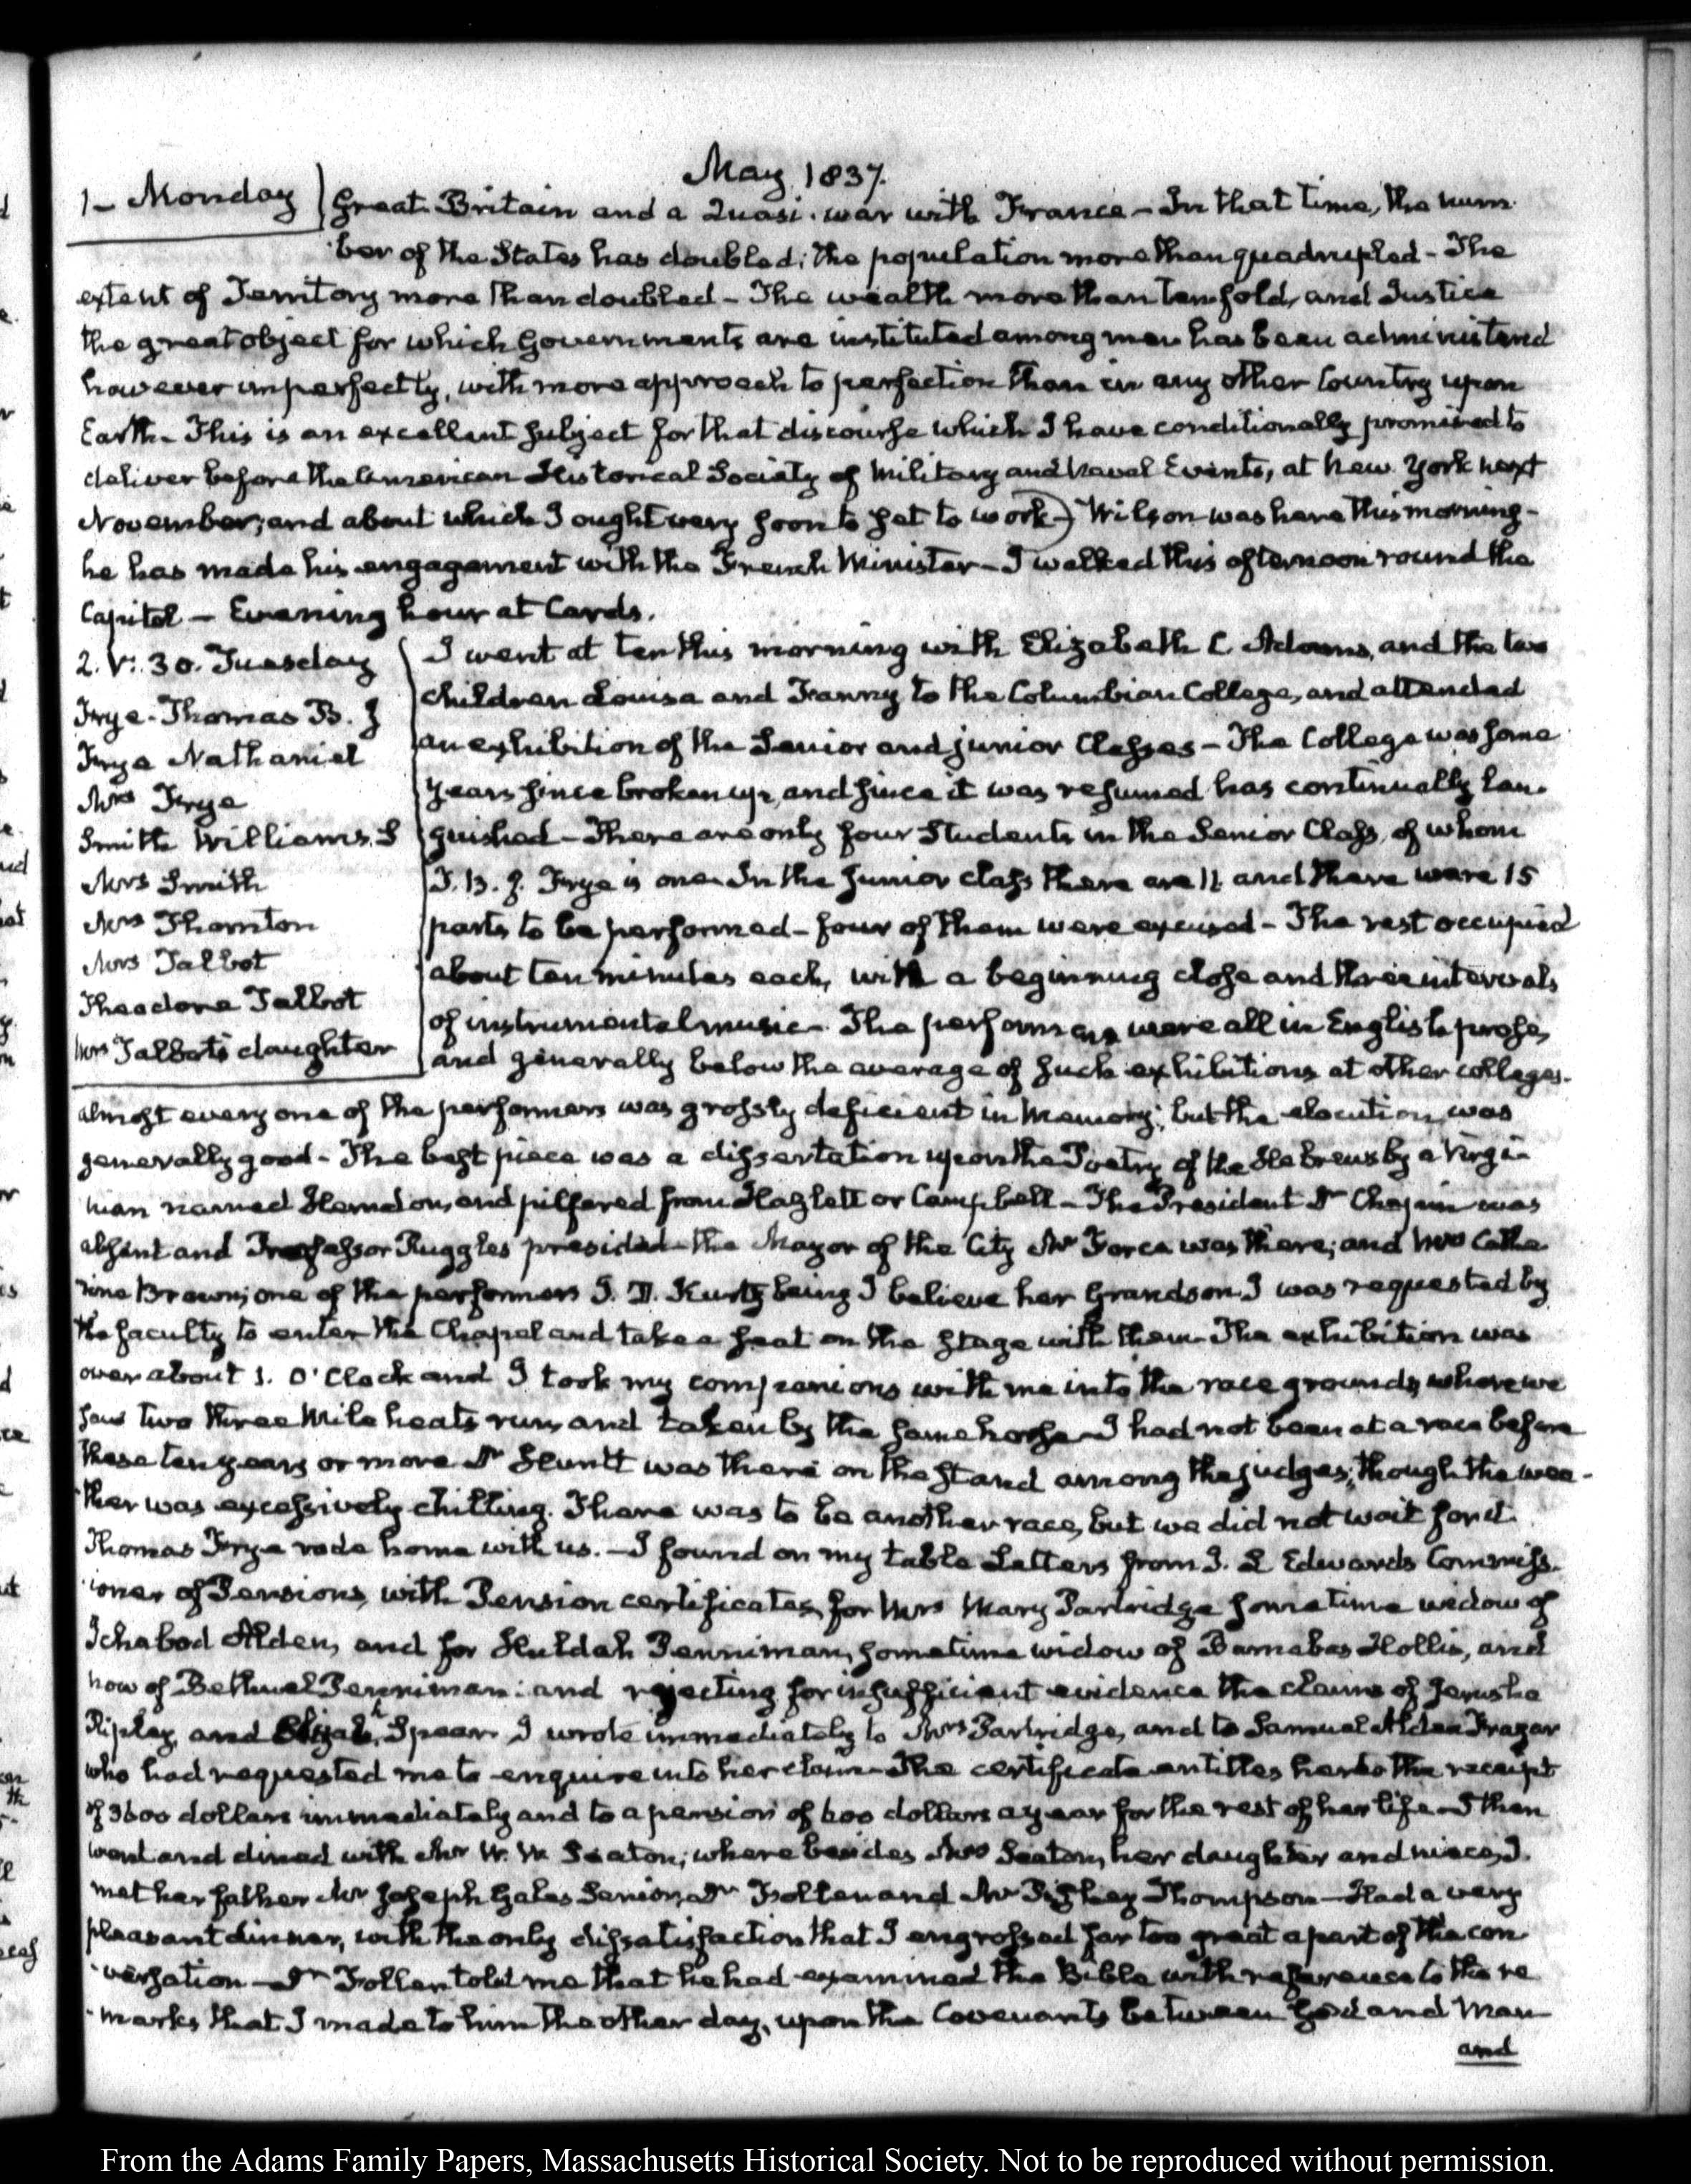 May 1837.
1 - Monday
Great Britain and a Quasi war with France - In that time, the num
ber of the States has doubled; the population more than quadrupled - The
extent of Territory more than doubled - The wealth more than tenfold, and Justice
the great object for which Governments are instituted among men has been administered
however imperfectly, with more approach to perfection than in any other Country upon
Earth - This is an excellent subject for that discourse which I have conditionally promised to
deliver before the American Historical Society of Military and Naval Events, at New York next
November; and about which I ought very soon to set to work -) Wilson was here this morning -
he has made his engagement with the French Minister - I walked this afternoon round the
Capitol - Evening hour at Cards.
2. V: 30. Tuesday
Frye - Thomas B. J
Frye Nathaniel
Mrs Frye
Smith William S
Mrs Smith
Mrs Thornton
Mrs Talbot
Theodore Talbot
Mrs Talbot's daughter
I went at ten this morning with Elizabeth C. Adams, and the two
children Louisa and Fanny to the Columbian College, and attended
an exhibition of the Senior and junior Classes - The College was some
years since broken up, and since it was resumed has continually lan-
guished - There are only four Students in the Senior Class, of whom
T. B. J. Frye is one. In the junior class there are 11 and there were 15
parts to be performed - four of them were excused - The rest occupied
about ten minutes each, with a beginning close and three intervals
of instrumental music - The performances were all in English prose,
and generally below the average of such exhibitions at other colleges -
almost every one of the performers was grossly deficient in memory; but the elocution was
generally good - The best piece was a dissertation upon the Poetry of the Hebrews by a Virgi-
nian named Herndon, and pilfered from Hazlett or Campbell - The President Dr Chapin was
absent and Professor Ruggles presided - the Mayor of the City Mr Force was there; and Mrs Cathe
rine Brown; one of the performers J. D. Kurtz being I believe her Grandson. I was requested by
the faculty to enter the Chapel and take a seat on the stage with them - The exhibition was
over about 1. O'Clock and I took my companions with me into the race grounds where we
saw two three mile heats run, and taken by the same horse - I had not been at a race before
these ten years or more Dr Huntt was there on the stand among the judges; though the wea-
ther was excessively chilling. There was to be another race, but we did not wait for it.
Thomas Frye rode home with us. - I found on my table Letters from J. L Edwards Commiss-
ioner of Pensions, with Pension certificates, for Mrs Mary Partridge sometime widow of
Ichabod Alden, and for Huldah Penniman, sometime widow of Barnabas Hollis, and
now of Bethuel Penniman: and rejecting for insufficient evidence the claims of Jerusha
Ripley, and Elizabh Spear. I wrote immediately to Mrs Partridge, and to Samuel Alden Frazar
who had requested me to enquire into her claim - The certificate entitles her to the receipt
of 3600 dollars immediately and to a pension of 600 dollars a year for the rest of her life - I then
went and dined with Mr W. W. Seaton; where besides Mrs Seaton, her daughter and niece, I
met her father Mr Joseph Gales Senior, Dr Follen and Mr Thompson - Had a very
pleasant dinner, with the only dissatisfaction that I engrossed far too great a part of the con
versation - Dr Follen told me that he had examined the Bible with reference to the re
marks that I made to him the other day, upon the Covenants between God and Man
and
From the Adams Family Papers, Massachusetts Historical Society. Not to be reproduced without permission.